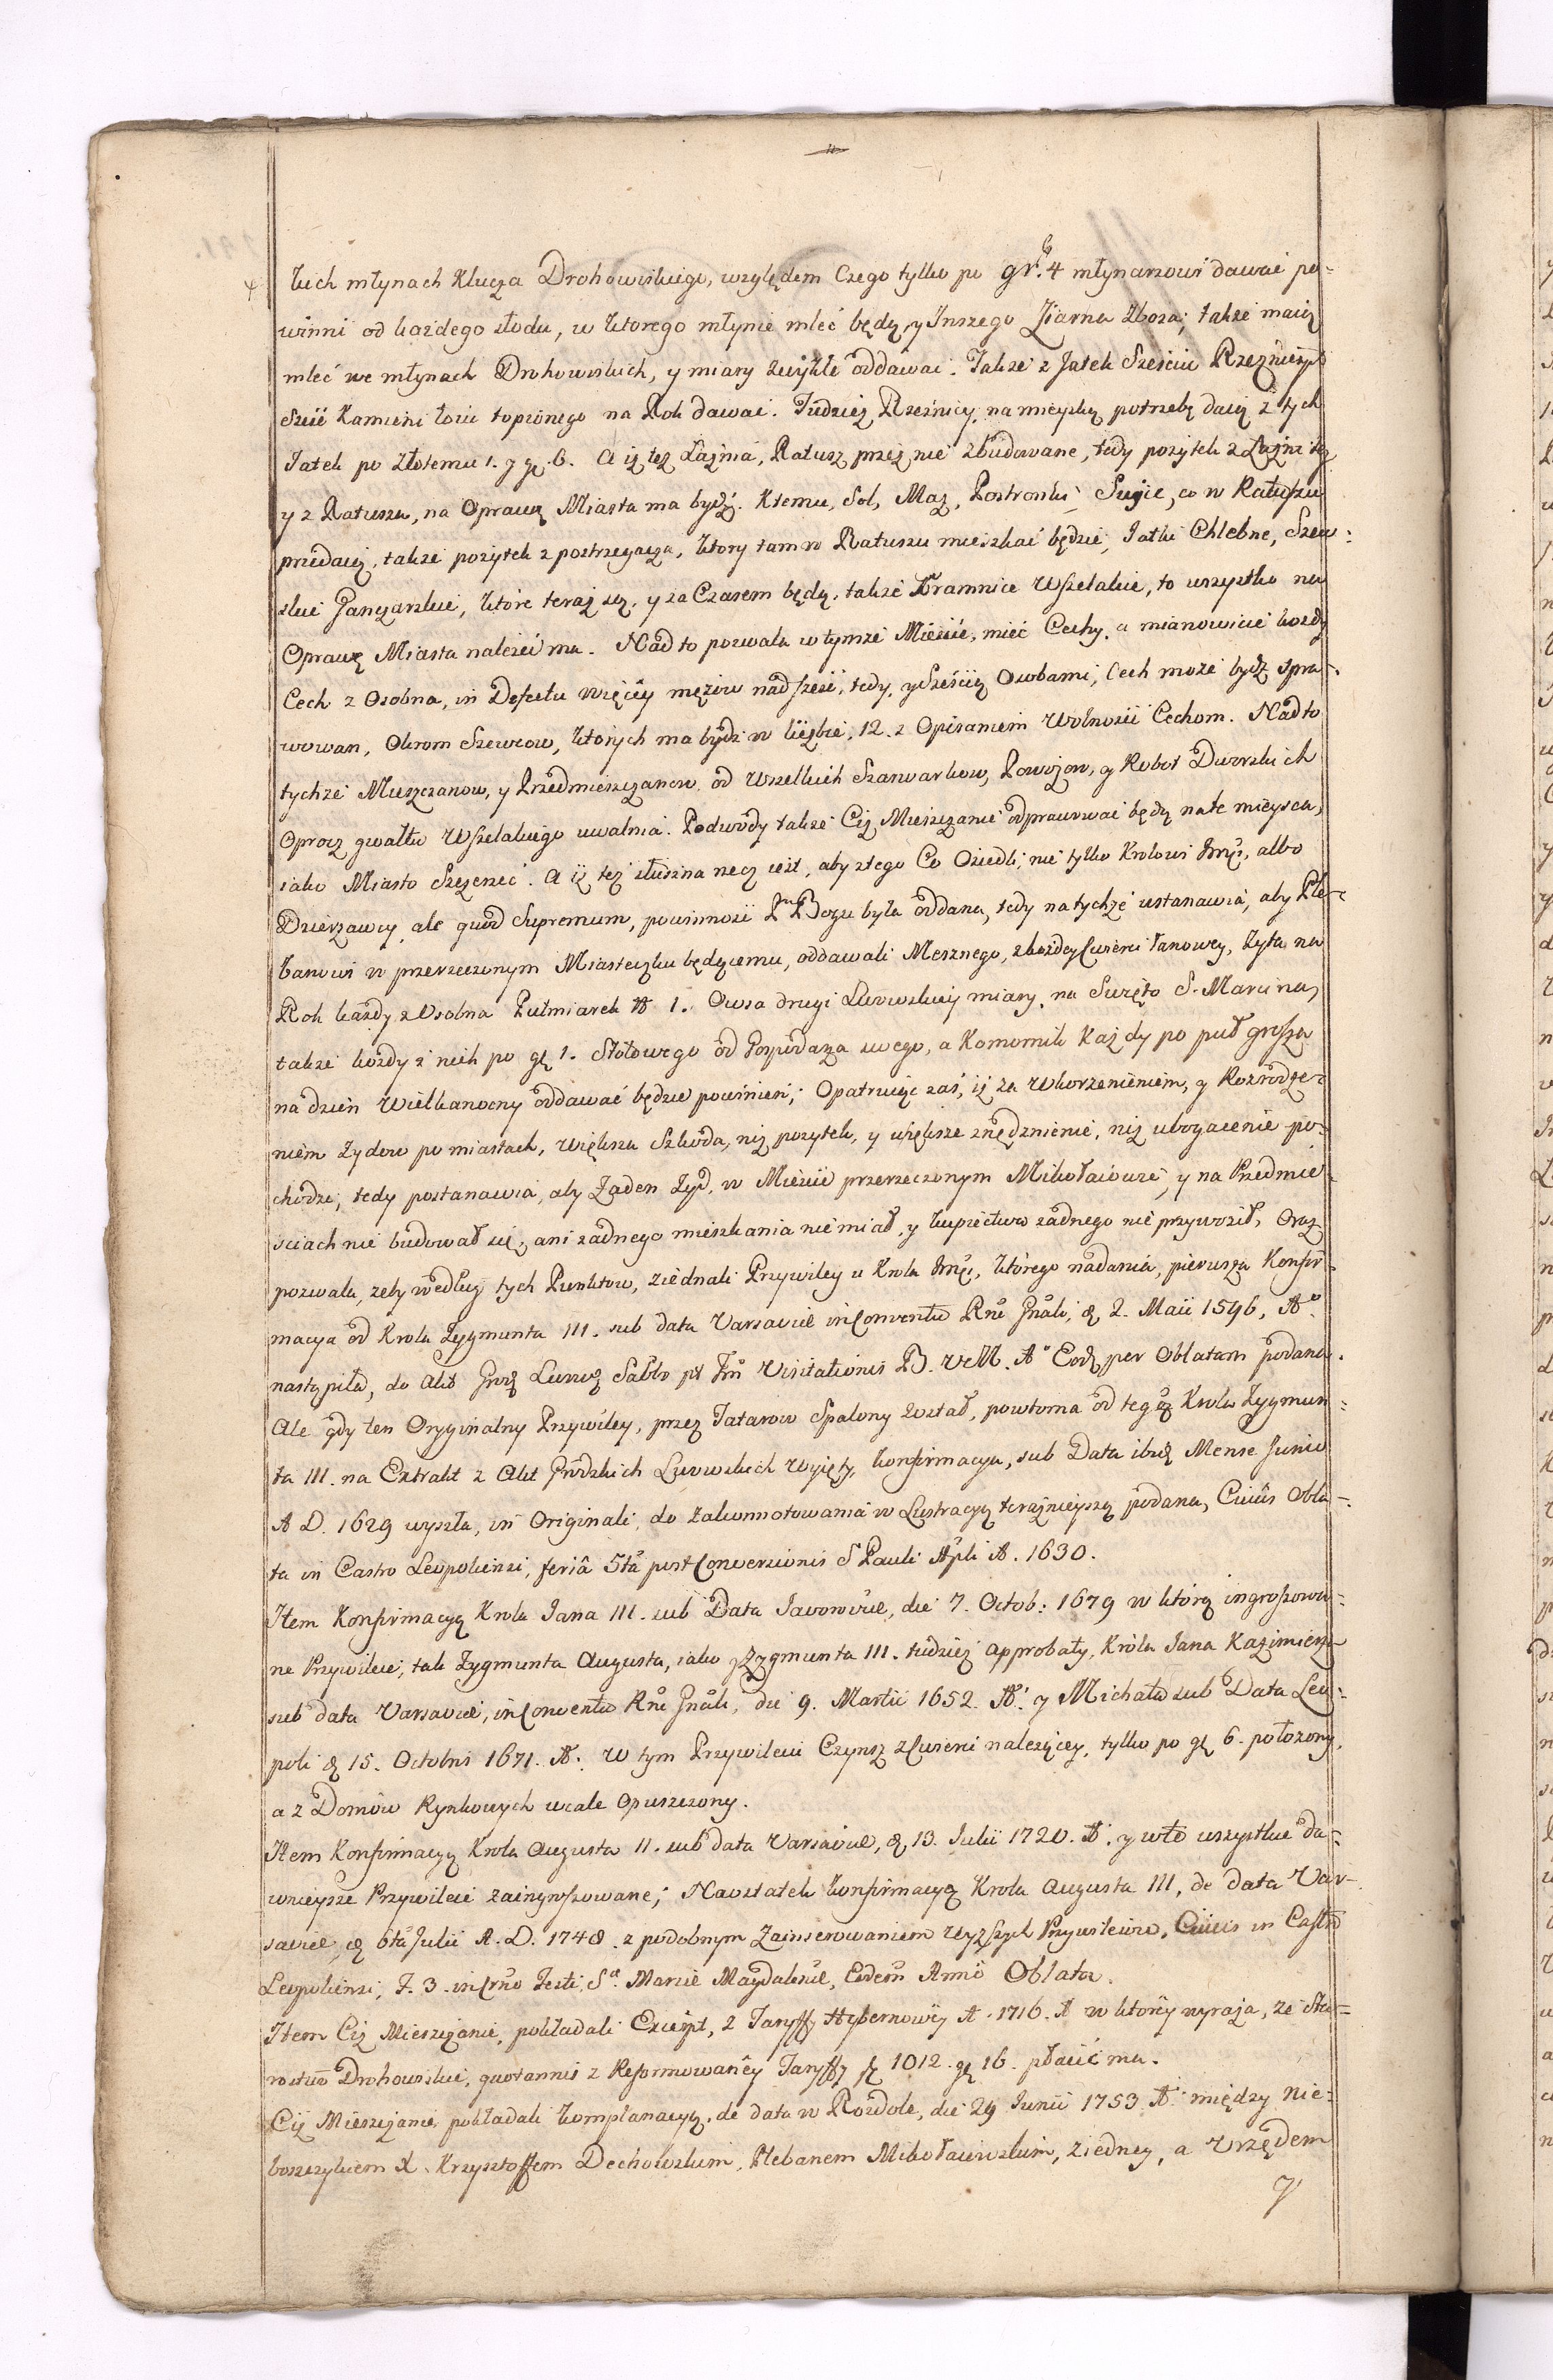 kich młynach Klucza Drohowiskiego, względem Czego tylko po gr. 4 młynarzowi dawać po-
winni od każdego słodu, w ktorego młynie mleć będą, y Inszego Ziarna Zboza; także maią
mleć we młynach Drohowiskich, y miary zwykłe oddawać. Także z Jatek Sześciu Rzeznicy
Sześć Kamieni łoiu topionego na Rok dawać. Tudzież Rzeźnicy, na mieyską potrzebę daią z tych
Jatek po Złotemu 1. y gr. 6. A iż też Łaźnia, Ratusz przez nie zbudowane, tedy pożytek z Łaźni tey
y z Ratusza, na Oprawę Miasta ma bydź. Ktemu, Sol, Maz, Postronki, co w Ratuszu
przedaią, także pozytek z postrzygacza, ktory tam w Ratuszu mieszkać będzie, Jatki Chlebne, Szew-
skie Garczarskie, ktore teraz są, y za Czasem będą, także Kramnice Wszelakie, to wszystko na
Oprawę Miasta należeć ma. Nad to pozwala w tymże Mieście, mieć Cechy, a mianowicie kożdy
Cech z Osobna, in Defectu więcey mężów nad sześć, tedy, y Sześcią Osobami, Cech może bydź spra-
wowan, Okrom Szewcow, ktorych ma bydź w liczbie, 12. z Opisaniem Wolności Cechom. Nad to
tychże Mieszczanow, y Przedmieszczanow, od Wszelkich Szarwarkow, Powozow, y Robot Dworskich
Oprocz gwałtu Wszelakiego uwalnia. Podwody także Ciż Mieszczanie odprawować będą na te mieysca,
iako Miasto Szczerzec. A iż też słuszna rzecz iest, aby z tego Co Osiedli, nie tylko Krolowi Jmci, albo
Dzierzawcy, ale quod Supremum, powinność Pnu Bogu była oddana, tedy na tychże ustanawia, aby Ple-
banowi w przerzeczonym Miasteczku będącemu, oddawali Mesznego, z kożdey Cwierci łanowey, Zyta na
Rok każdy z Osobna Pułmiarek N 1. Owsa drugi Lwowskiey miary, na Swięto S. Marcina,
także kożdy z nich po gr 1. Stołowego od Gospodarza swego, a Komornik Każdy po puł grosza
na dzień Wielkanocny oddawać będzie powinien; Opatruiąc zaś, iż za Wkorzenieniem, y Rozrodze-
niem Zydow po miastach, większa Szkoda, niż pozytek, y większe znędznienie, niż ubogacenie po-
chodzi, tedy postanawia, aby Żaden Żyd, w Mieście przerzeczonym Mikołaiowie, y na Przedmie-
sciach nie budował się, ani żadnego mieszkania nie miał, y kupiectwa żadnego nie przywoził, Oraz
pozwala, zeby według tych Punktow, ziednali Przywiley u Krola Jmci, którego nadania, pierwsza Konfir-
macya od Krola Zygmunta III. sub data Varsaviæ in Conventu Rni Gnali, d 2. Maii 1596, Ao.
nastąpiła, do Akt Grod Lwow Sabbo pt Fm Visitationis B. V. M. Ao Eod per Oblatam podana.
Ale gdy ten Oryginalny Przywiley, przez Tatarow Spalony został, powtorna od tegoż Krola Zygmun-
ta III. na Extrakt z Akt Grodzkich Lwowskich wyięty, konfirmacya, sub Data ibid Mense Junio
A D. 1629 wyszła, in Originali, do zakonnotowania w Lustracyą teraznieyszą podana, Cuius Obla-
ta in Castro Leopoliensi, feriâ 5ta post Conversionis S Pauli Apli A. 1630.
Item Konfirmacyą Krola Jana III. sub Data Javoroviæ, die 7. Octob: 1679 w którą ingrossowa-
ne Przywileie, tak Zygmunta Augusta, iako y Zygmunta III. tudzież approbaty, Króla Jana Kazimierza
sub data Varsaviæ, in Conventu Rni Gnali, die 9. Martii 1652. A. y Michała sub Data Leo-
poli d 15. Octobris 1671. A. w tym Przywileiu Czynsz z Cwierci należącey, tylko po gr 6. położony,
a z Domow Rynkowych wcale Opuszczony.
Item Konfirmacyą Krola Augusta II. sub data Varsaviæ, d, 13. Julii 1720. A. y w te wszystkie da-
wnieysze Przywileie zaingrossowane; Naostatek konfirmacyą Krola Augusta III, de data Var-
saviæ, d 6ta Julii A. D. 1748. z podobnym Zainserowaniem wyższych Przywileiow, Cuius in Castro
Leopoliensi, F. 3. in Crno Festi, Sæ Mariæ Magdalenæ, Eodem Anno Oblata.
Item Ciż Mieszczanie, pokładali Excerpt, z Taryffy Hybernowey A. 1716. A w ktorey wyraża, że Sta-
rostwo Drohowskie, quotannis z Reformowaney Taryffy zł 1012. gr 16. płacić ma.
Ciż Mieszczanie pokładali komplanacyą, de data w Rozdole, die 29 Junii 1753 A. między Nie-
boszczykiem X. Krzysztoffem Dechowskim, Plebanem Mikołaiowskim, z iedney, a Urzędem
y